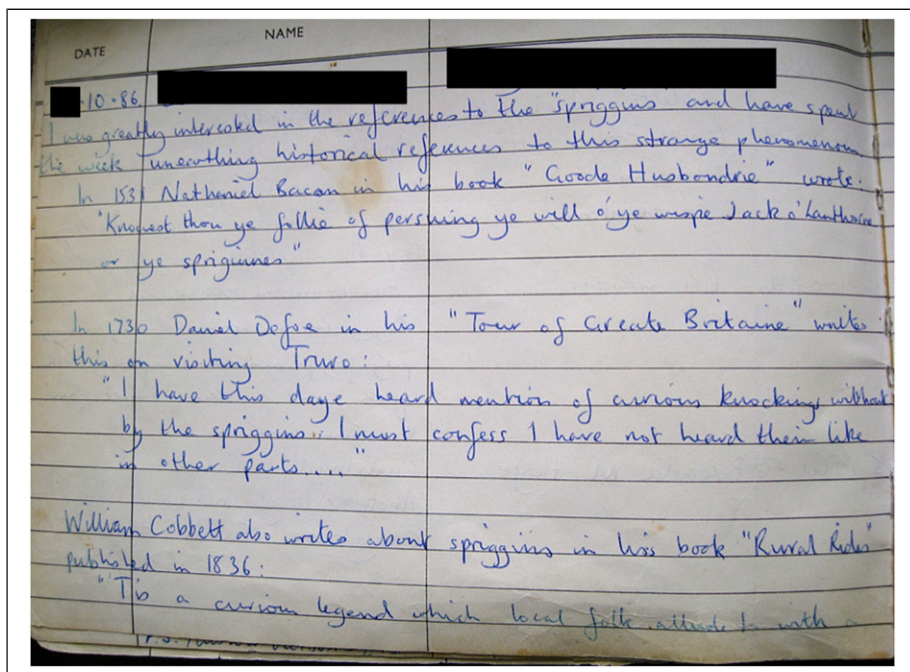 DATE
NAME
·10·86
I was greatly interested in the references to the "spriggins and have spent
the week unearthing historical references to this strange phenomenon.
In 1531 Nathaniel Bacon in his book "Goode Husbondrie" wrote.
'Knowest thou ye follie of pershing ye will o'ye wispe Jack o'Lanthorne
or ye spriginnes"
In 1730 Daniel Defoe in his "Tour of Greate Britaine" writes
this on visiting Truro:
"I have this daye heard mention of curious knockings without
by the spriggins.. I must confess I have not heard their like
in other parts...."
William Cobbett also writes about spriggins in his book "Rural Rides"
published in 1836:
"'Tis a curious legend which local folk allude to with a